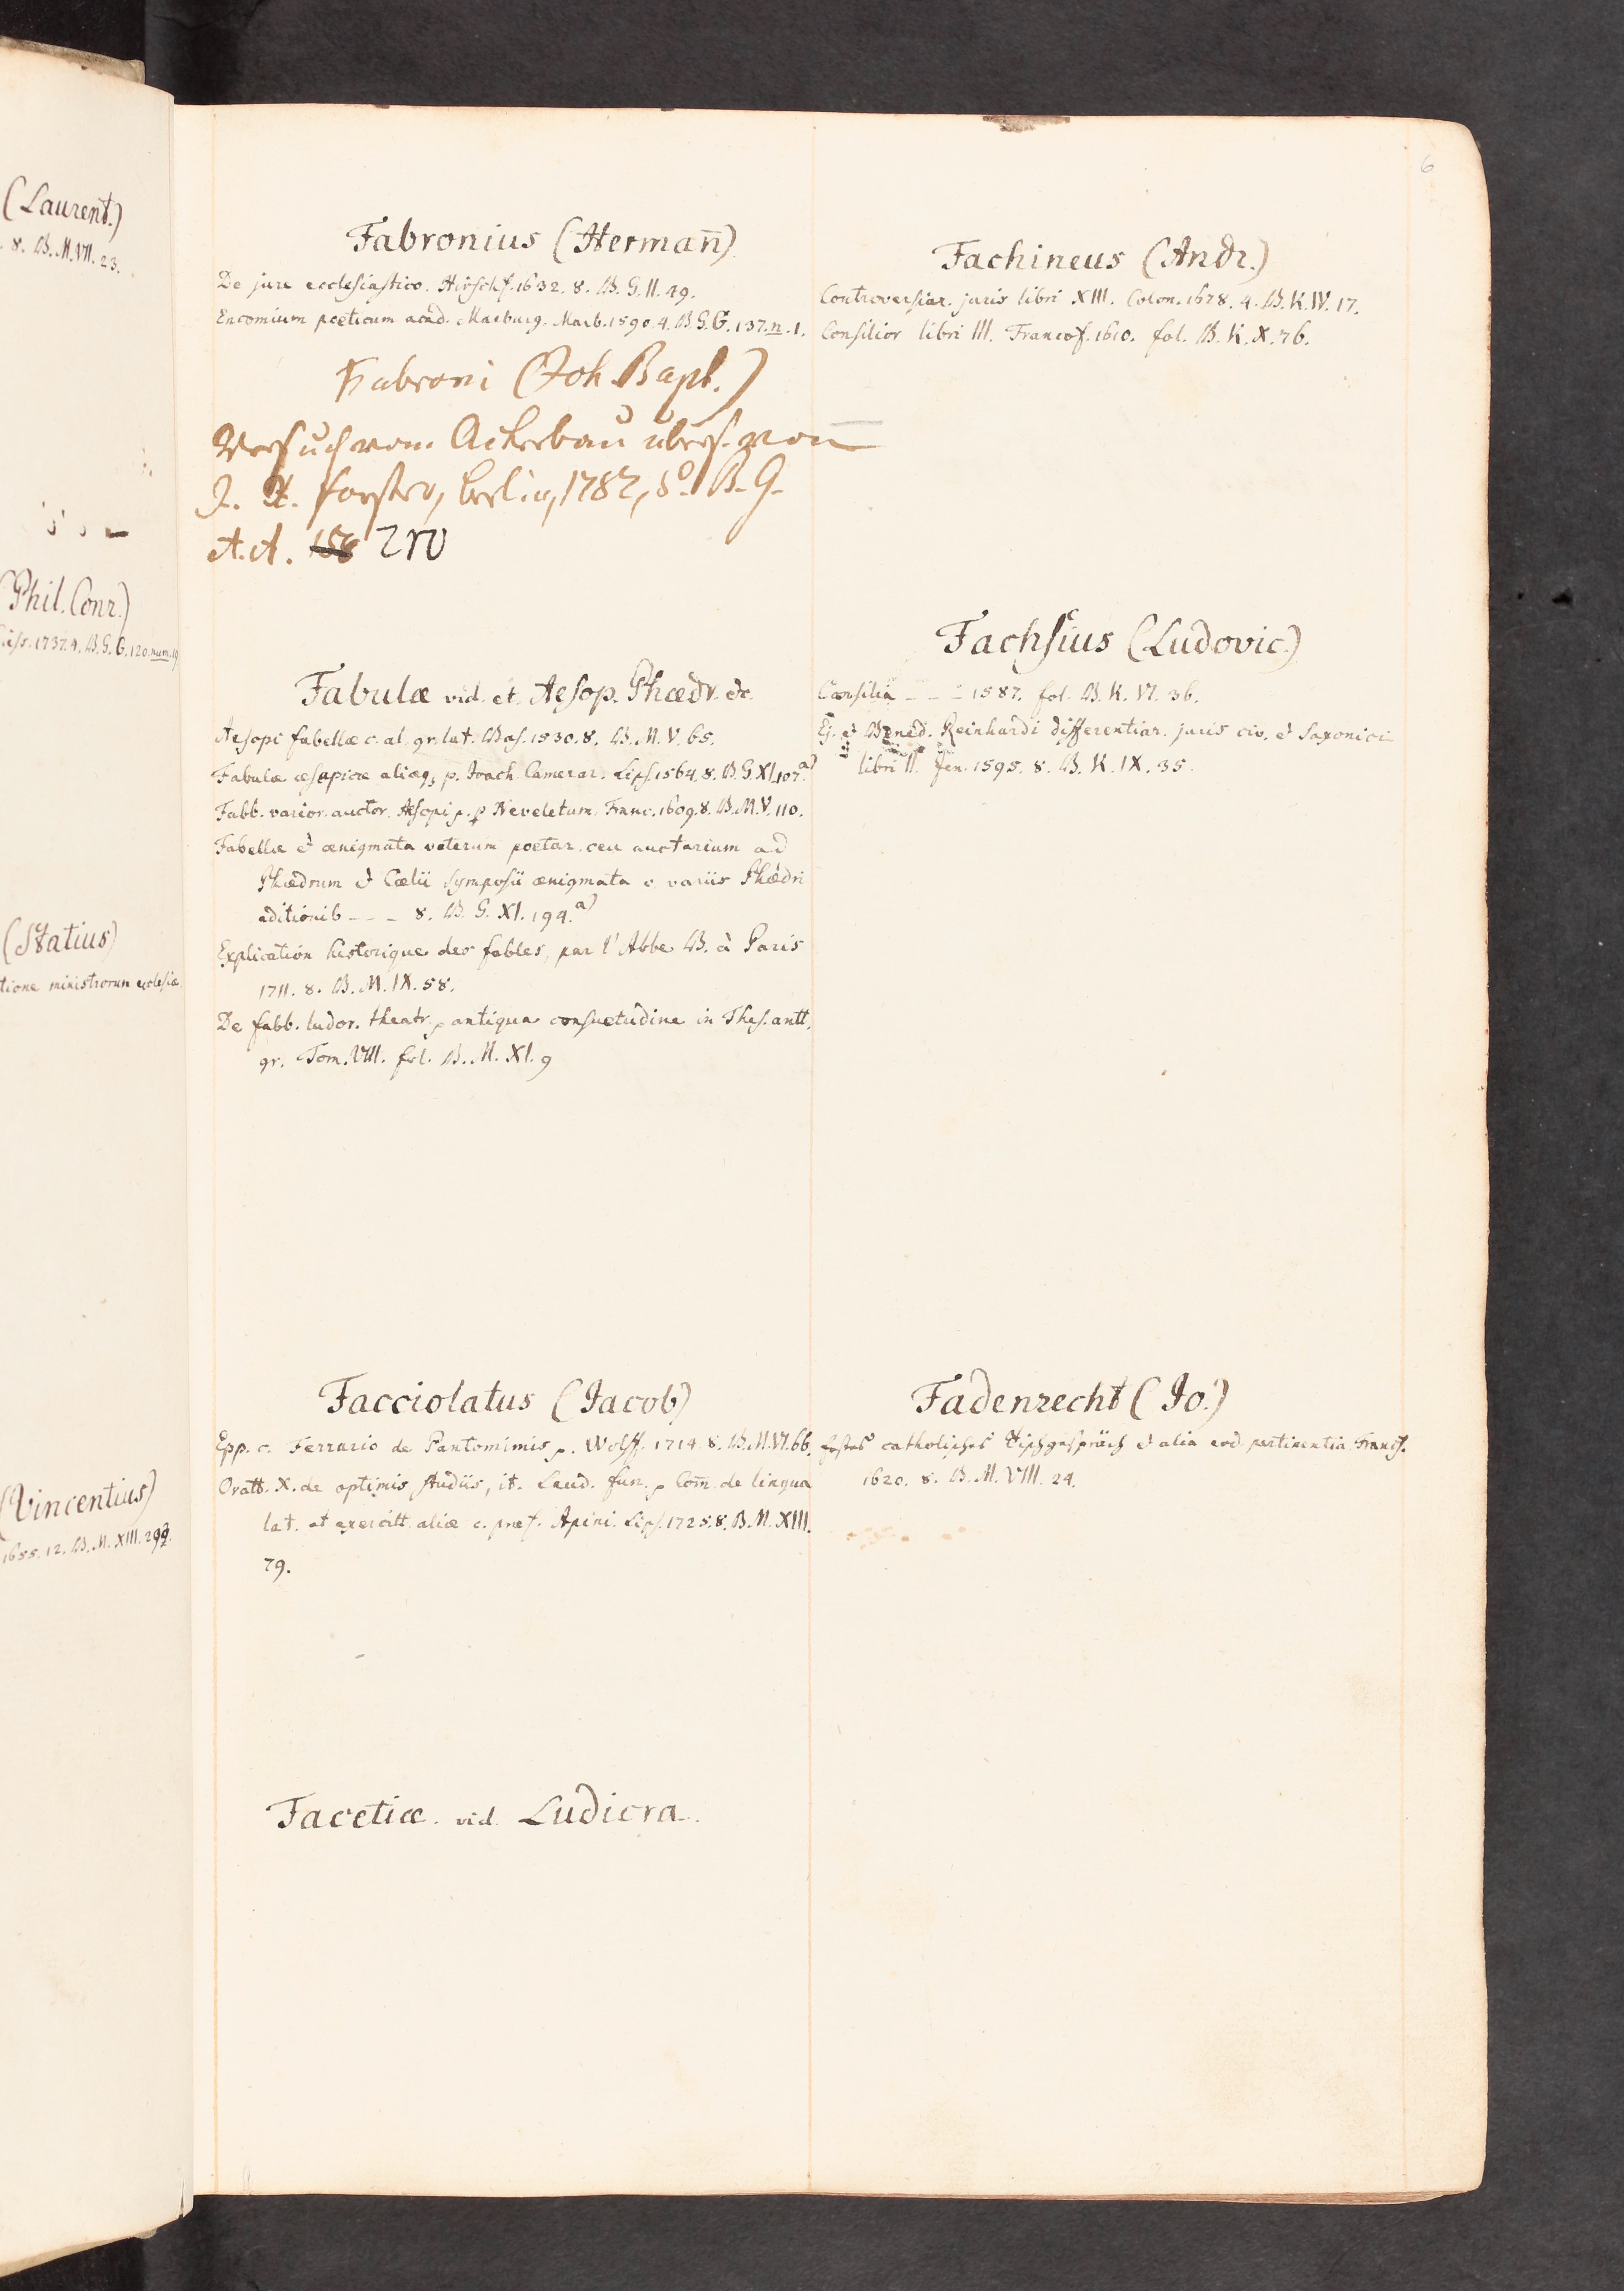 (Laurent.)
8. B. M. VII. 23.
(Phil. Conr.)
1737. 4. B. G. G. 120. num. 19
(Statius)
tione ministrorum ecclesiæ
(Vincentius)
1655. 12. B. M. XIII. 299.
6
Fabronius (Hermañ)
De jure ecclesiastico. Hirschf. 1632. 8. B. G. II. 49.
Encomium poeticum acad. Marburg. Marb. 1590. 4. B. G. G. 137. n. 1.
Fabroni (Joh. Bapt.)
Versuch vom Ackerbau übers. von
J. R. Forster, Berlin, 1782, 8º. B. G.
A. A. 156 270
Fabulæ vid. et. Aesop. Phædr. &c.
Aesopi fabellæ c. al. gr. lat. Bas. 1530. 8. B. M. V. 65.
Fabulæ æsopicæ aliæq; p. Ioach. Camerar. Lips. 1564. 8. B. G. XI. 107. a)
Fabb. varior. auctor. Aesopi p. p Neveletum. Franc. 1609. 8. B. M. V. 110.
Fabellæ & ænigmata veterum poetar. ceu auctarium ad
Phædrum & Cælii Symposii ænigmata c variis Phædri
editionib - - - 8. B. G. XI. 194. a)
Explication historique des fables, par l'Abbe B. à Paris
1711. 8. B. M. IX. 58.
De fabb. ludor. theatr. p antiqua consuetudine in Thes. antt.
gr. Tom. VIII. fol. B. M. XI. 9
Facciolatus (Jacob)
Epp. c. Ferrario de Pantomimis p. Wolff. 1714. 8. B. M. VI. 66.
Oratt. X. de optimis studiis, it. Laud. fun. p Com̃. de lingua
lat. et exercitt. aliæ c. præf. Apini. Lips. 1725. 8. B. M. XIII.
79.
Facetiæ. vid. Ludicra.
Fachineus (Andr.)
Controversiar. juris libri XIII. Colon. 1678. 4. B. K. IV. 17.
Consilior libri III. Francof. 1610. fol. B. K. X. 76.
Fachsius (Ludovic.)
Consilia - - - 1587. fol. B. K. VI. 36.
Ej. & Bened. Reinhardi differentiar. juris civ. & Saxonici
libri II. Jen. 1595. 8. B. K. IX. 35.
Fadenrecht (Jo.)
catholisches Tischgespräch & alia eod pertinentia Francf.
1620. 8. B. M. VIII. 24.